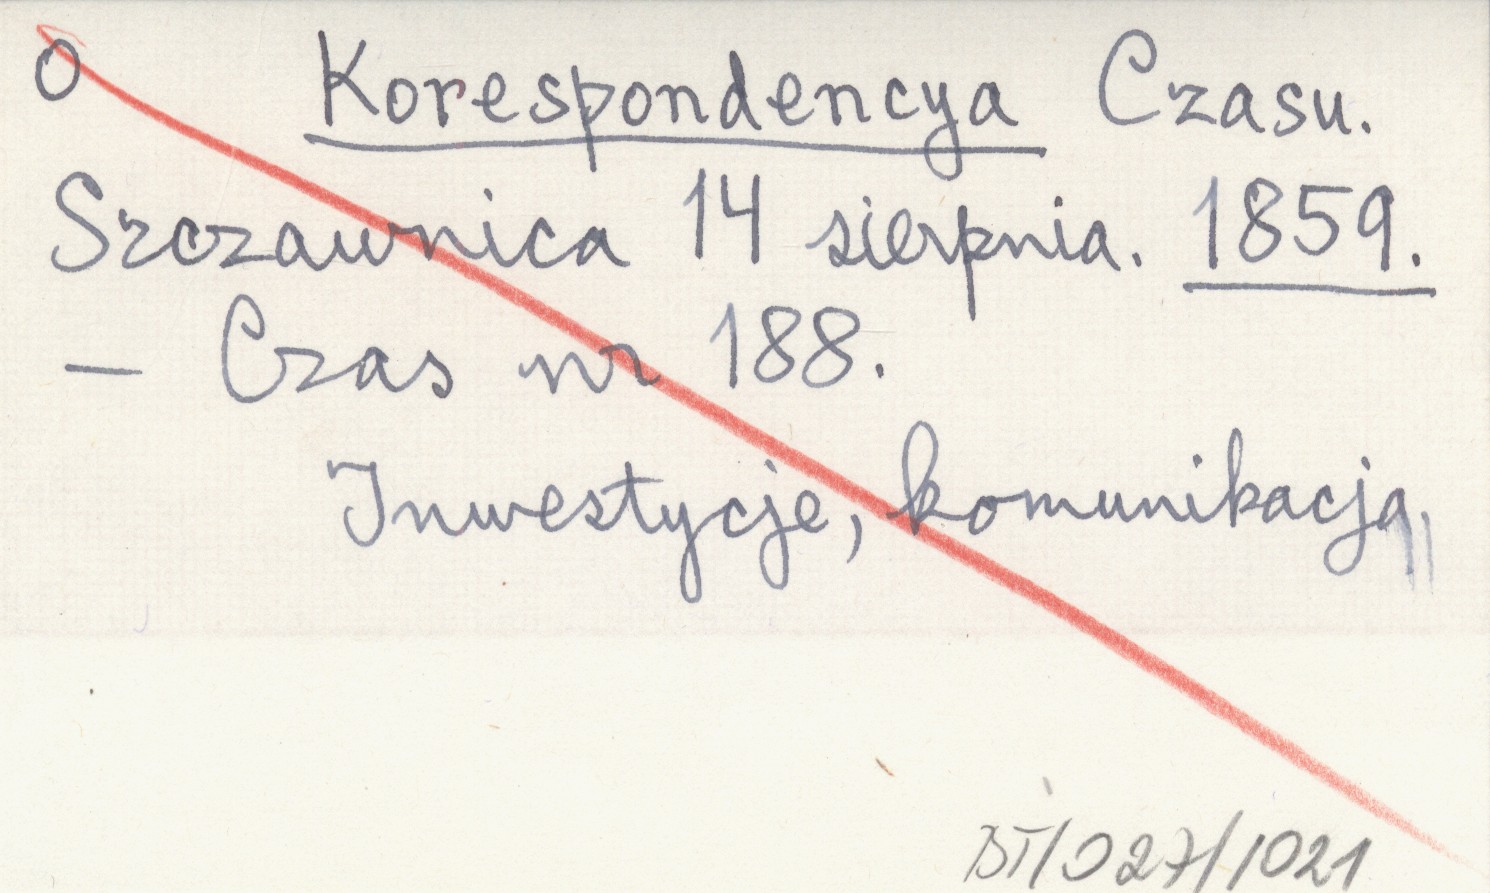 O Korespondencya Czasu.
Szczawnica 14 sierpnia. 1859.
— Czas nr 188.
Inwestycje, komunikacja,
BT/027/1021